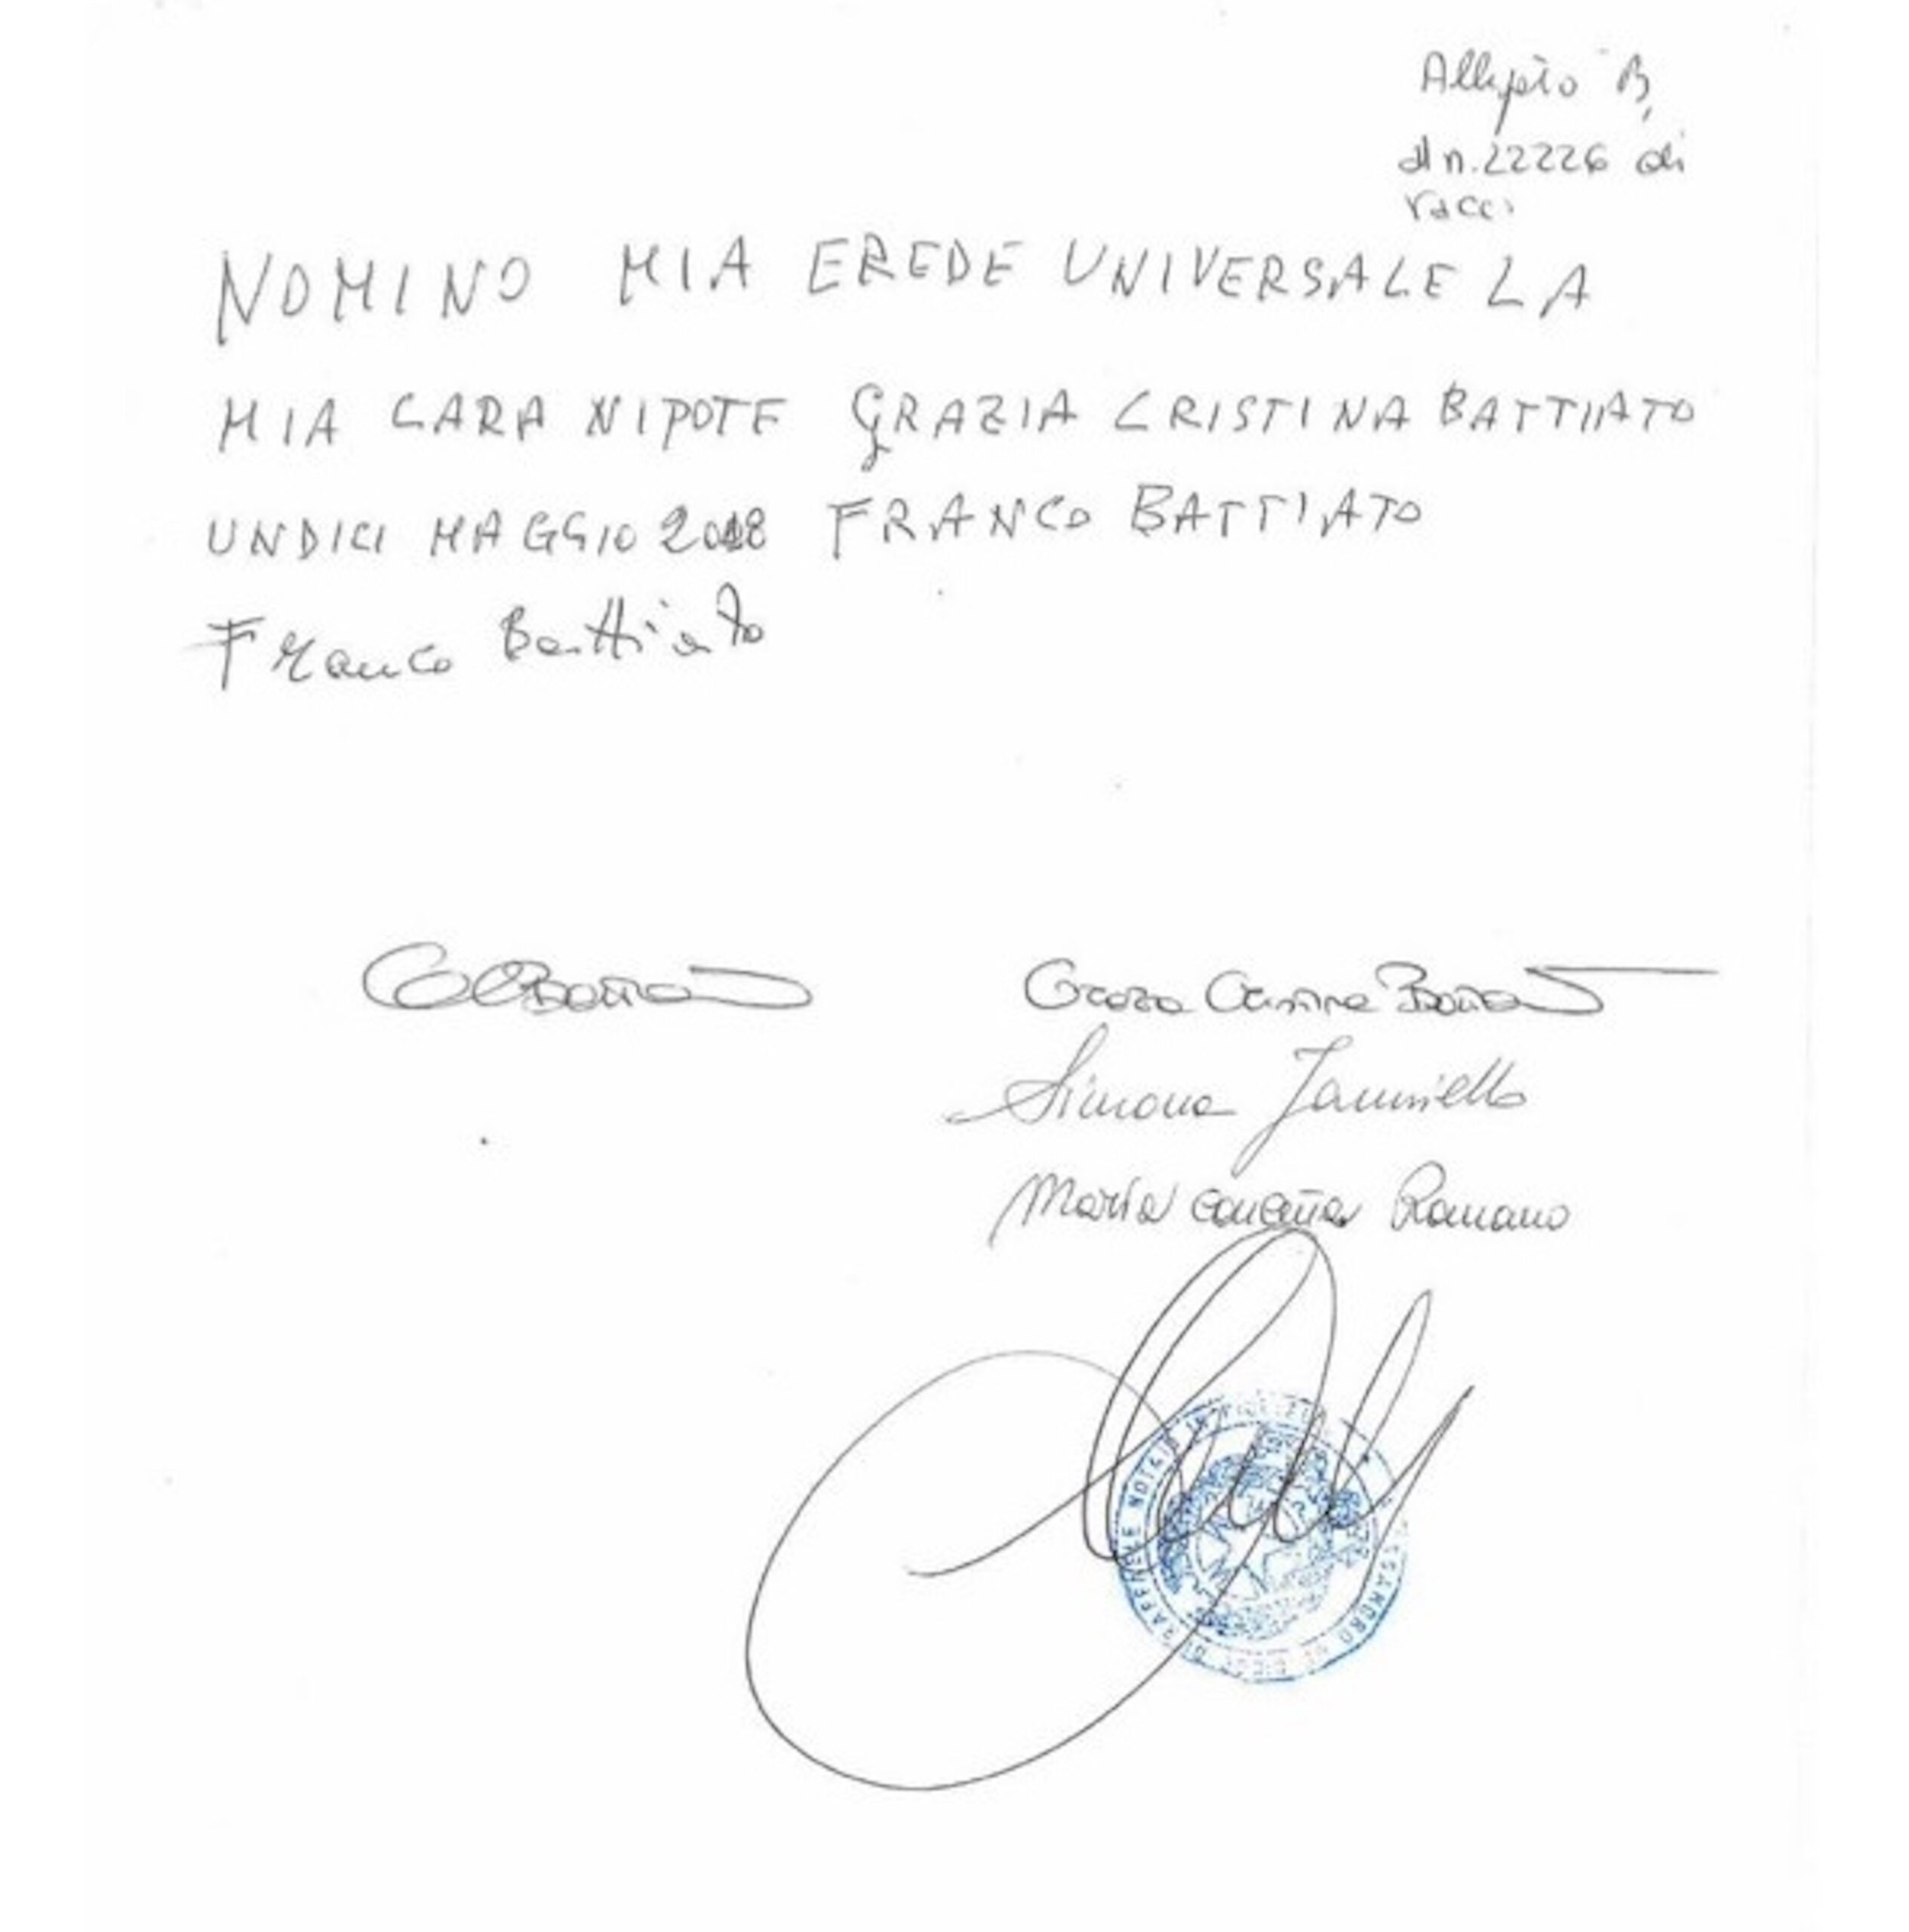 Allegato "B"
al n. 22226 di
racc.
NOMINO MIA EREDE UNIVERSALE LA
MIA CARA NIPOTE GRAZIA CRISTINA BATTIATO
UNDICI MAGGIO 2018 FRANCO BATTIATO
Franco Battiato
Grazia Cristina Battiato
Simona Ianniello
Maria Concetta Romano
NOTAIO IN